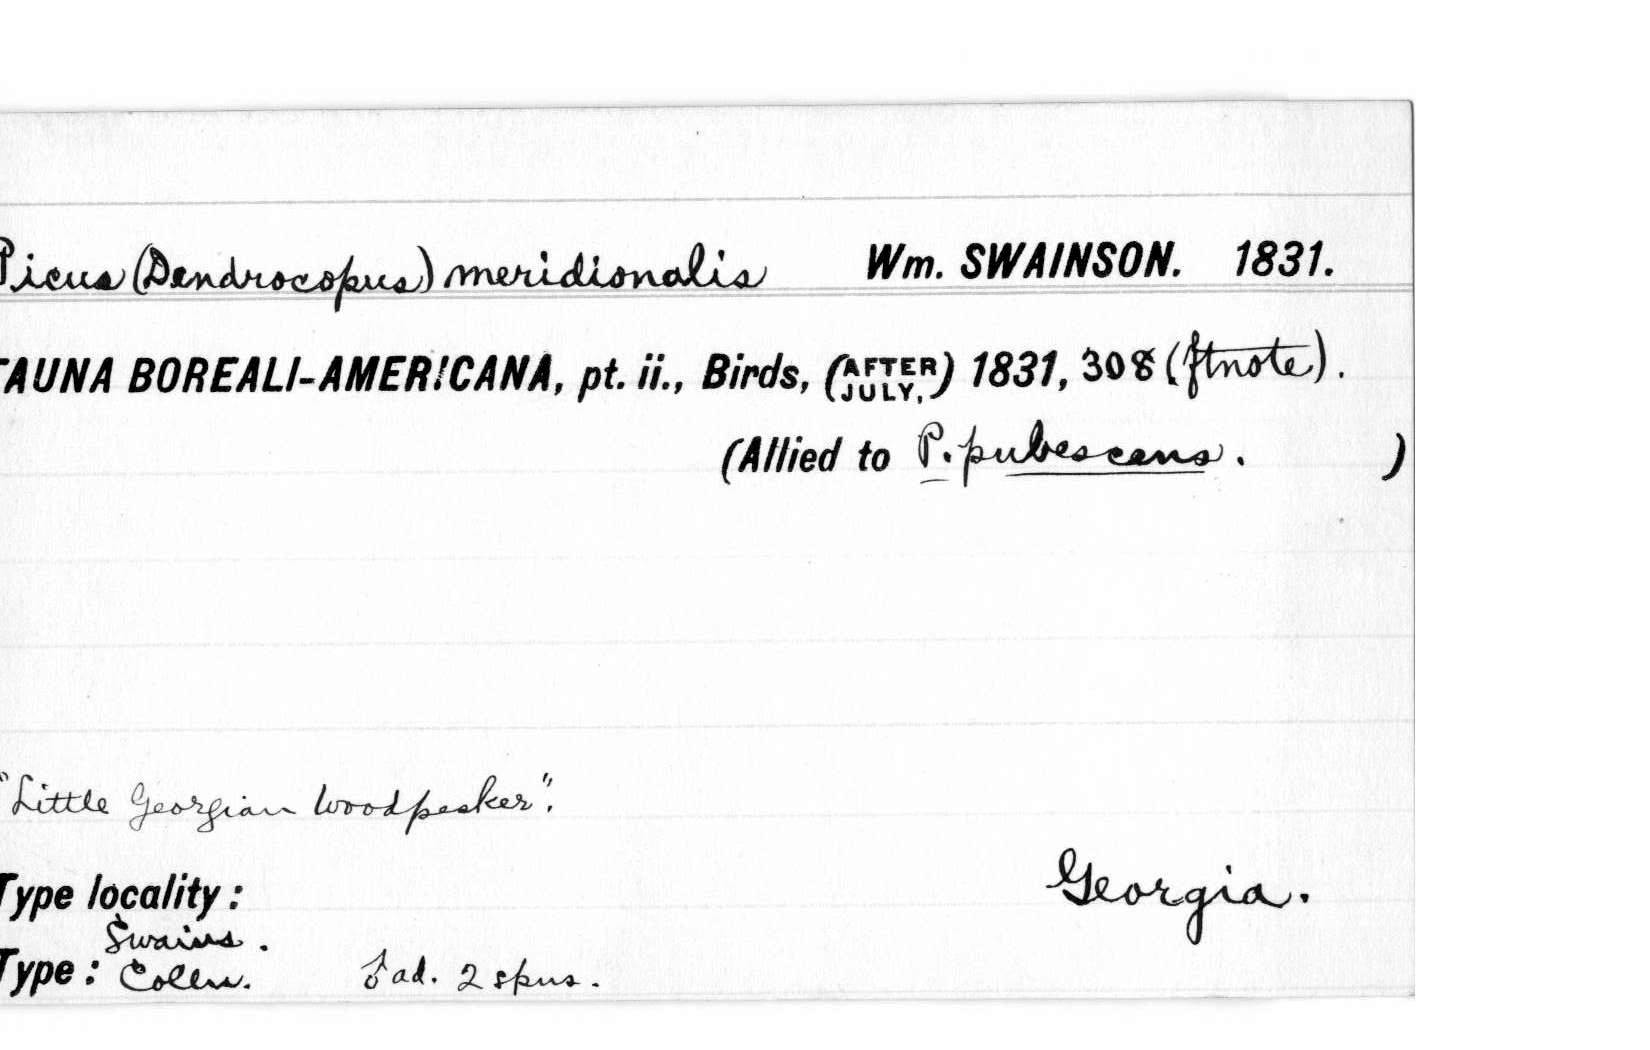 Picus (Dendrocopus) meridionalis Wm. SWAINSON. 1831.
FAUNA BOREALI-AMERICANA, pt. ii., Birds, (AFTER JULY,) 1831, 308 (ftnote).
(Allied to P. pubescens. )
"Little Georgian Woodpecker".
Type locality: Georgia.
Swains.
Type: Colln. ♂ ad. 2 spms.